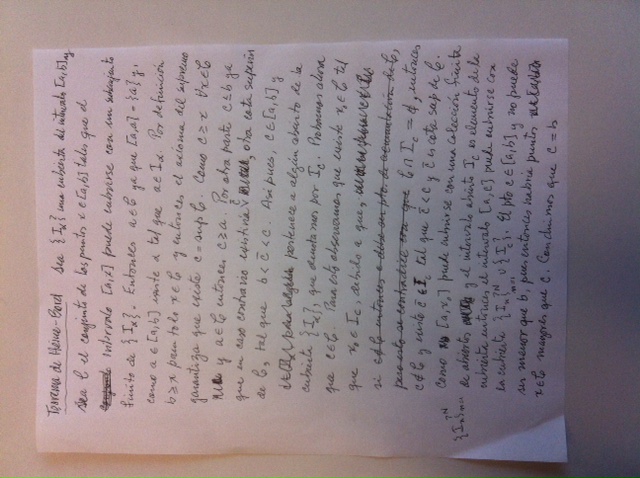 Teorema de Heine-Borel Sea {Iα} una cubierta del intervalo [a,b] y
sea C el conjunto de los puntos x ∈ [a,b] tales que el
intervalo [a,x] puede cubrirse con un subconjunto
finito de {Iα}. Entonces a ∈ C ya que [a,a] = {a} y,
como a ∈ [a,b] existe α tal que a ∈ Iα. Por definición
b ≥ x para todo x ∈ C y entonces el axioma del supremo
garantiza que existe c = sup C. Como c ≥ x ∀x ∈ C
y a ∈ C entonces c ≥ a. Por otra parte c ≤ b ya
que en caso contrario existiría otra cota superior
de C, tal que b < c̄ < c. Así pues, c ∈ [a,b] y
pertenece a algún abierto de la
cubierta {Iα}, que denotamos por Ic. Probamos ahora
que c ∈ C. Para esto observamos que existe x₀ ∈ C tal
que x₀ ∈ Ic, debido a que,
si C ∩ Ic = ∅, entonces
c ∉ C y existe c̄ ∈ Ic tal que c̄ < c y c̄ es cota sup de C.
Como [a,x₀] puede cubrirse con una colección finita
{In}ᴺn=1 de abiertos y el intervalo abierto Ic es elemento de la
cubierta entonces el intervalo [a,c] puede cubrirse con
la cubierta {In}ᴺn=1 ∪ {Ic}. El pto c ∈ [a,b] y no puede
ser menor que b, pues entonces habría puntos
x ∈ C mayores que c. Concluimos que c = b